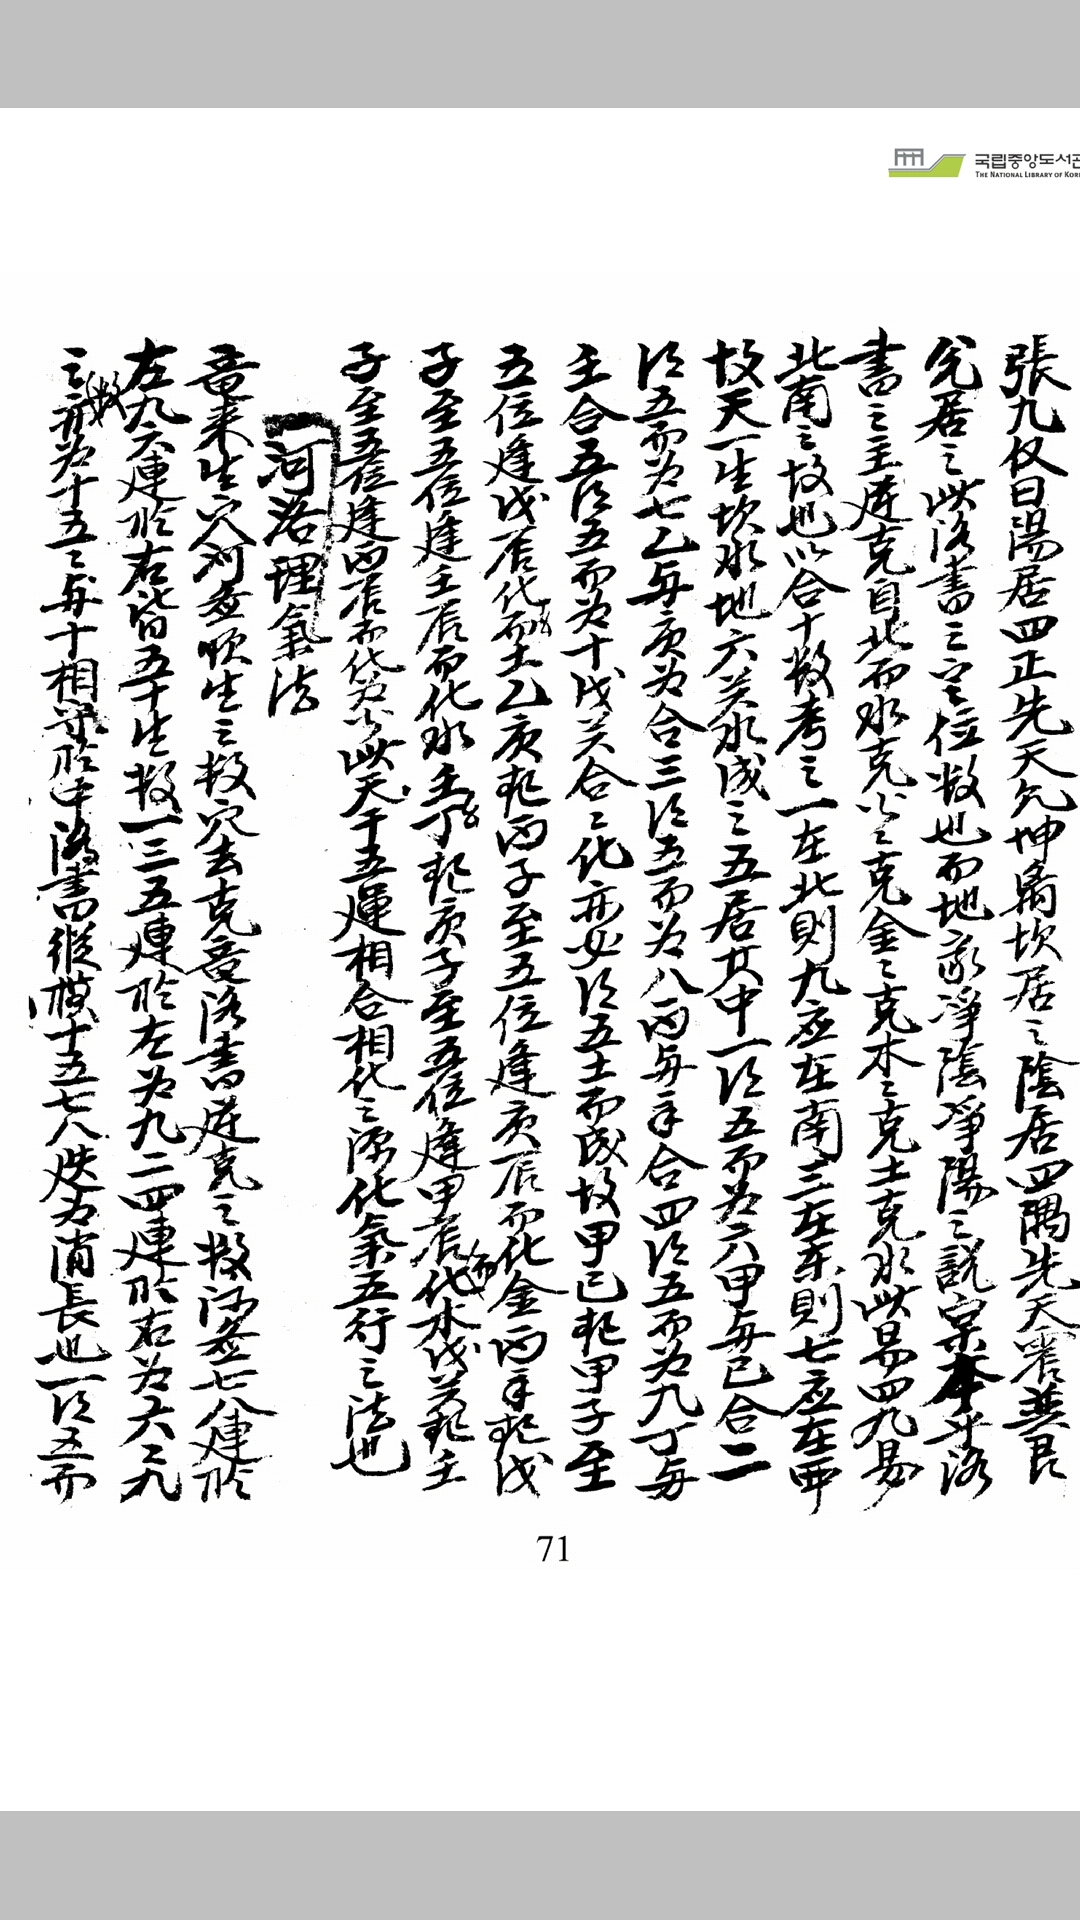 국립중앙도서관
THE NATIONAL LIBRARY OF KOR
張九仅曰陽居四正先天乾坤离坎居之陰居四隅先天震巽艮
兌居之此洛書之定位数也而地家淨陰淨陽之説宗本乎洛
書之主逆克自北而水克火克金克木克土克水此易四九易
北南之故也以合十数考之一在北則九应在南三在東則七应在西
故天一生坎水地六癸水成之五居其中一得五而为六甲与己合二
得五而为七乙与庚为合三得五而为八丙与辛合四得五而为九丁与
壬合五得五而为十戊癸合合化亦必得五土而成故甲己起甲子至
五位逢戊辰化而土乙庚起丙子至五位逢庚辰而化金丙辛起戊
子至五位逢壬辰而化水丁壬起庚子至五位逢甲辰而化木戊癸起壬
子至五位逢丙辰而化为火此天干五運相合相化之源化氣五行之法也
河洛理氣法
竜来生穴河圖順生之数穴去克竜洛書逆克之数河圖七八連於
左九六連於右皆五十生数一三五連於左为九二四連於右为六六九
之数并为十五五与十相守於中洛書縱横十五七八迭为消長也一得五而
71